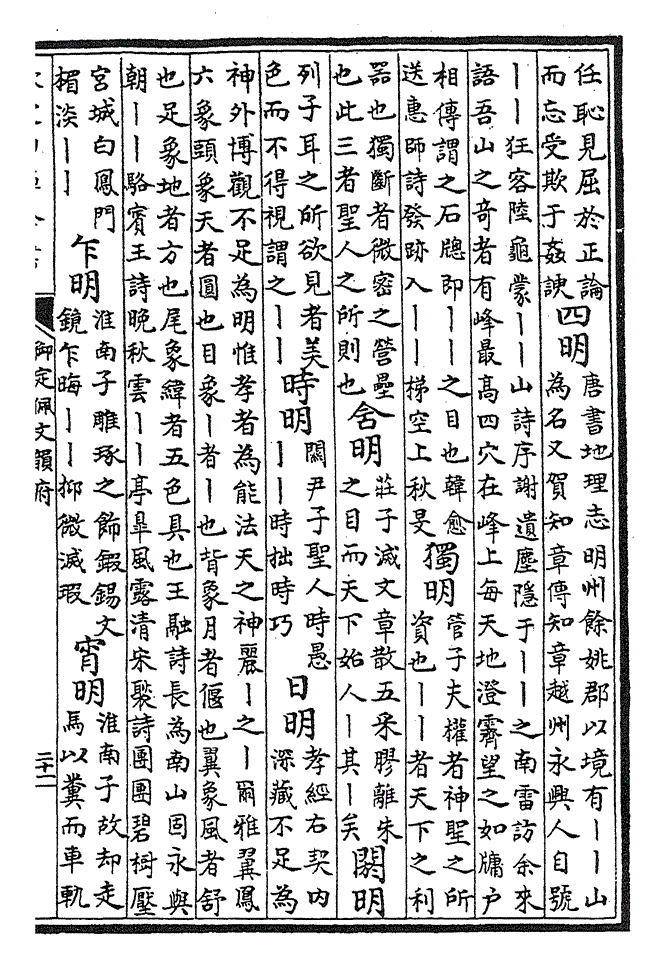 任恥見屈於正論
而忘受欺于姦諛
四明
唐書地理志明州餘姚郡以境有丨丨山
為名又賀知章傳知章越州永興人自號
丨丨狂客陸龜蒙丨丨山詩序謝遺塵隱于丨丨之南雷訪余來
語吾山之奇者有峰最高四穴在峰上每天地澄霽望之如牖戶
相傳謂之石牕即丨丨之目也韓愈
送惠師詩發跡入丨丨梯空上秋旻
獨明
管子夫權者神聖之所
資也丨丨者天下之利
器也獨斷者微密之營壘
也此三者聖人之所則也
含明
莊子滅文章散五采膠離朱
之目而天下始人丨其丨矣
閼明
列子耳之所欲見者美
色而不得視謂之丨丨
時明
關尹子聖人時愚
丨丨時拙時巧
日明
孝經右契内
深藏不足為
神外博觀不足為明惟孝者為能法天之神麗丨之丨爾雅翼鳳
六象頭象天者圓也目象丨者丨也背象月者偃也翼象風者舒
也足象地者方也尾象緯者五色具也王融詩長為南山固永與
朝丨丨駱賓王詩晚秋雲丨丨亭臯風露清宋褧詩團團碧樹壓
宮城白鳳門
楣淡丨丨
乍明
淮南子雕琢之飾鍜錫文
鏡乍晦丨丨抑微滅瑕
宵明
淮南子故却走
馬以糞而車軌
御定佩文韻府